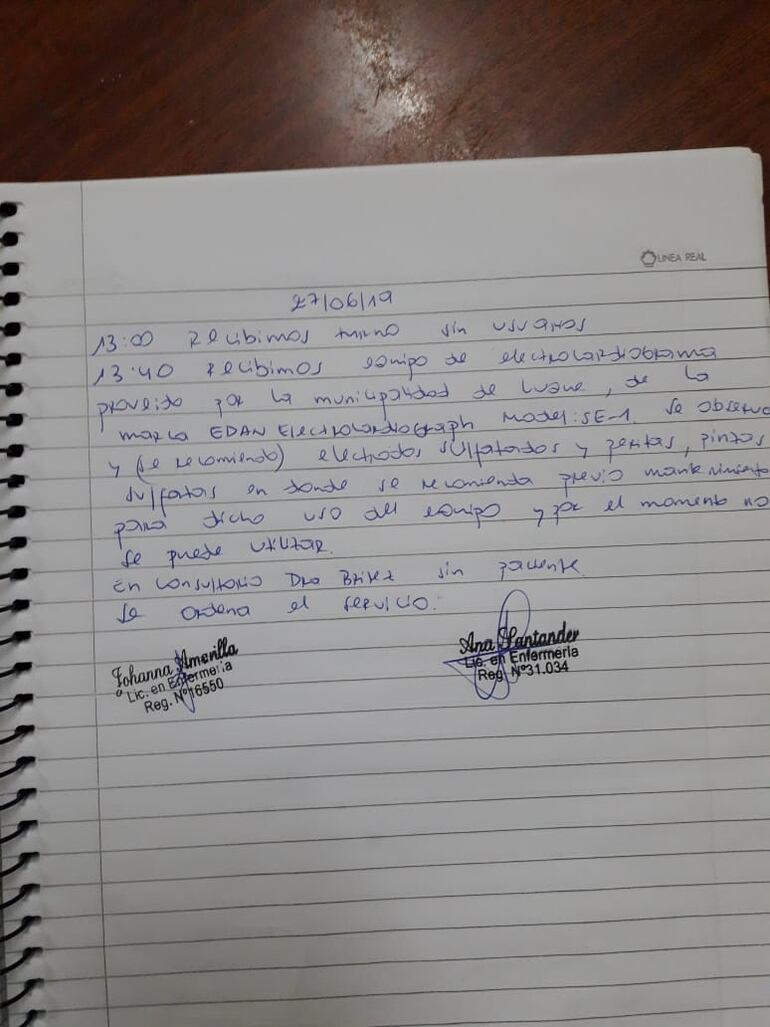 LINEA REAL
27/06/19
13:00 Recibimos turno sin usuarios
13:40 Recibimos equipo de electrocardiograma
proveido por la municipalidad de luque, de la
marca EDAN Electrocardiograph Model: SE-1. se observa
y (se recomienda) electrodos sulfatados y peritas, pinzas
sulfatas en donde se recomienda previo mantenimiento
para dicho uso del equipo y por el momento no
se puede utilizar.
En consultorio Dra Britez sin paciente.
Se ordena el servicio.
Johanna Amarilla
Lic. en Enfermeria
Reg. Nº16550
Ana Santander
Lic. en Enfermeria
Reg. Nº31.034